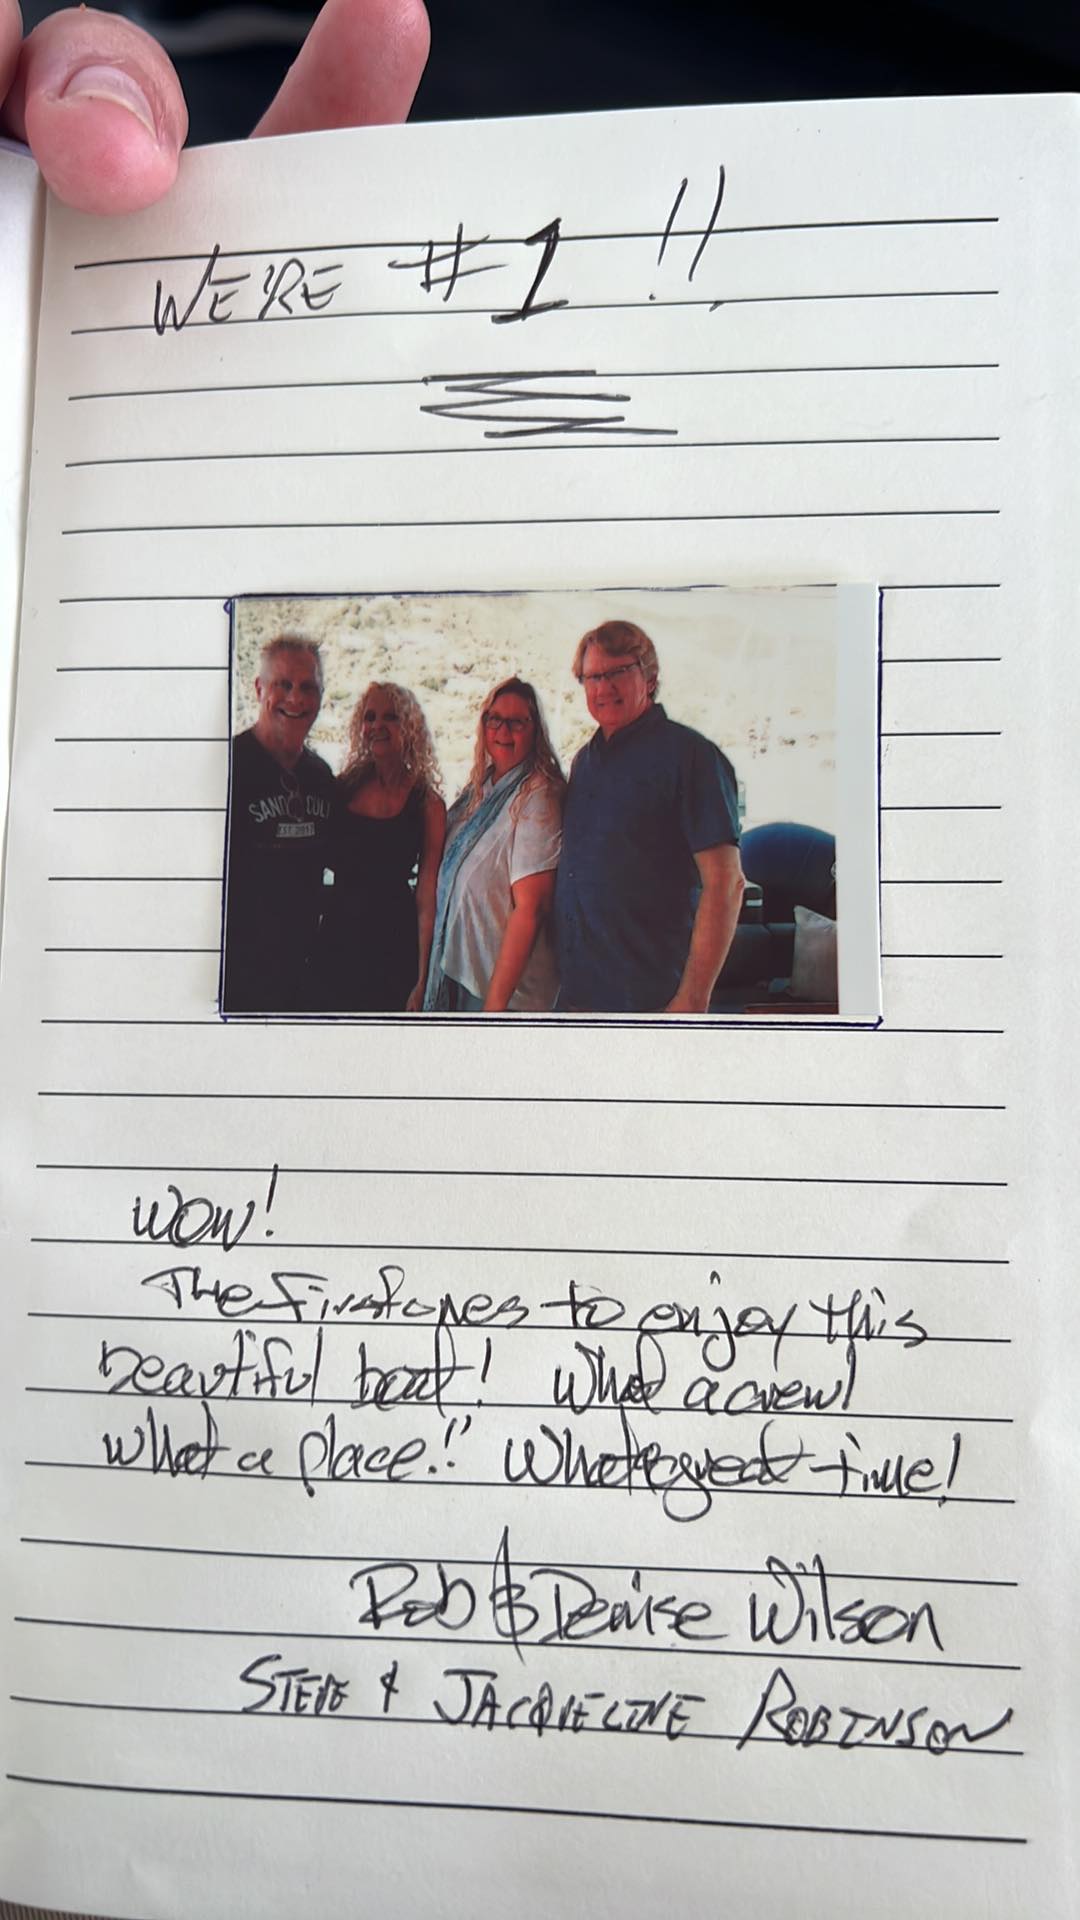 WE'RE #1 !!
SAND DUL
EST. 201
WOW!
The First ones to enjoy this
beautiful boat! What a crew!
What a place!! What a great time!
Rob & Denise Wilson
STEVE & JACQUELINE ROBINSON